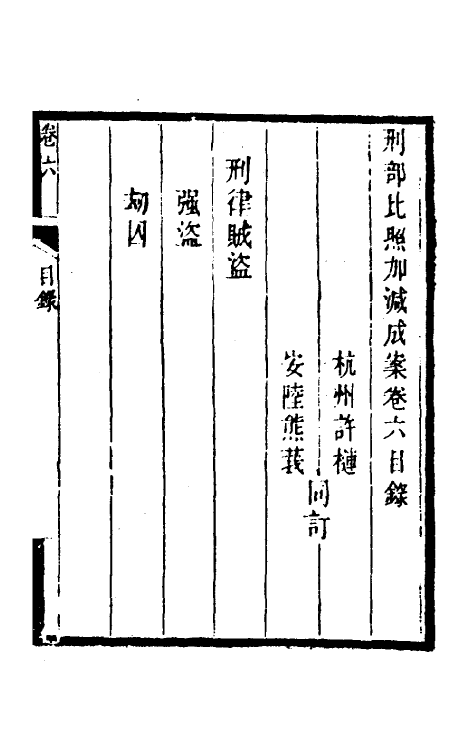 刑部比照加減成案卷六目錄
杭州許槤
安陸熊莪
同訂
刑律賊盜
强盜
刼囚
卷六
目錄